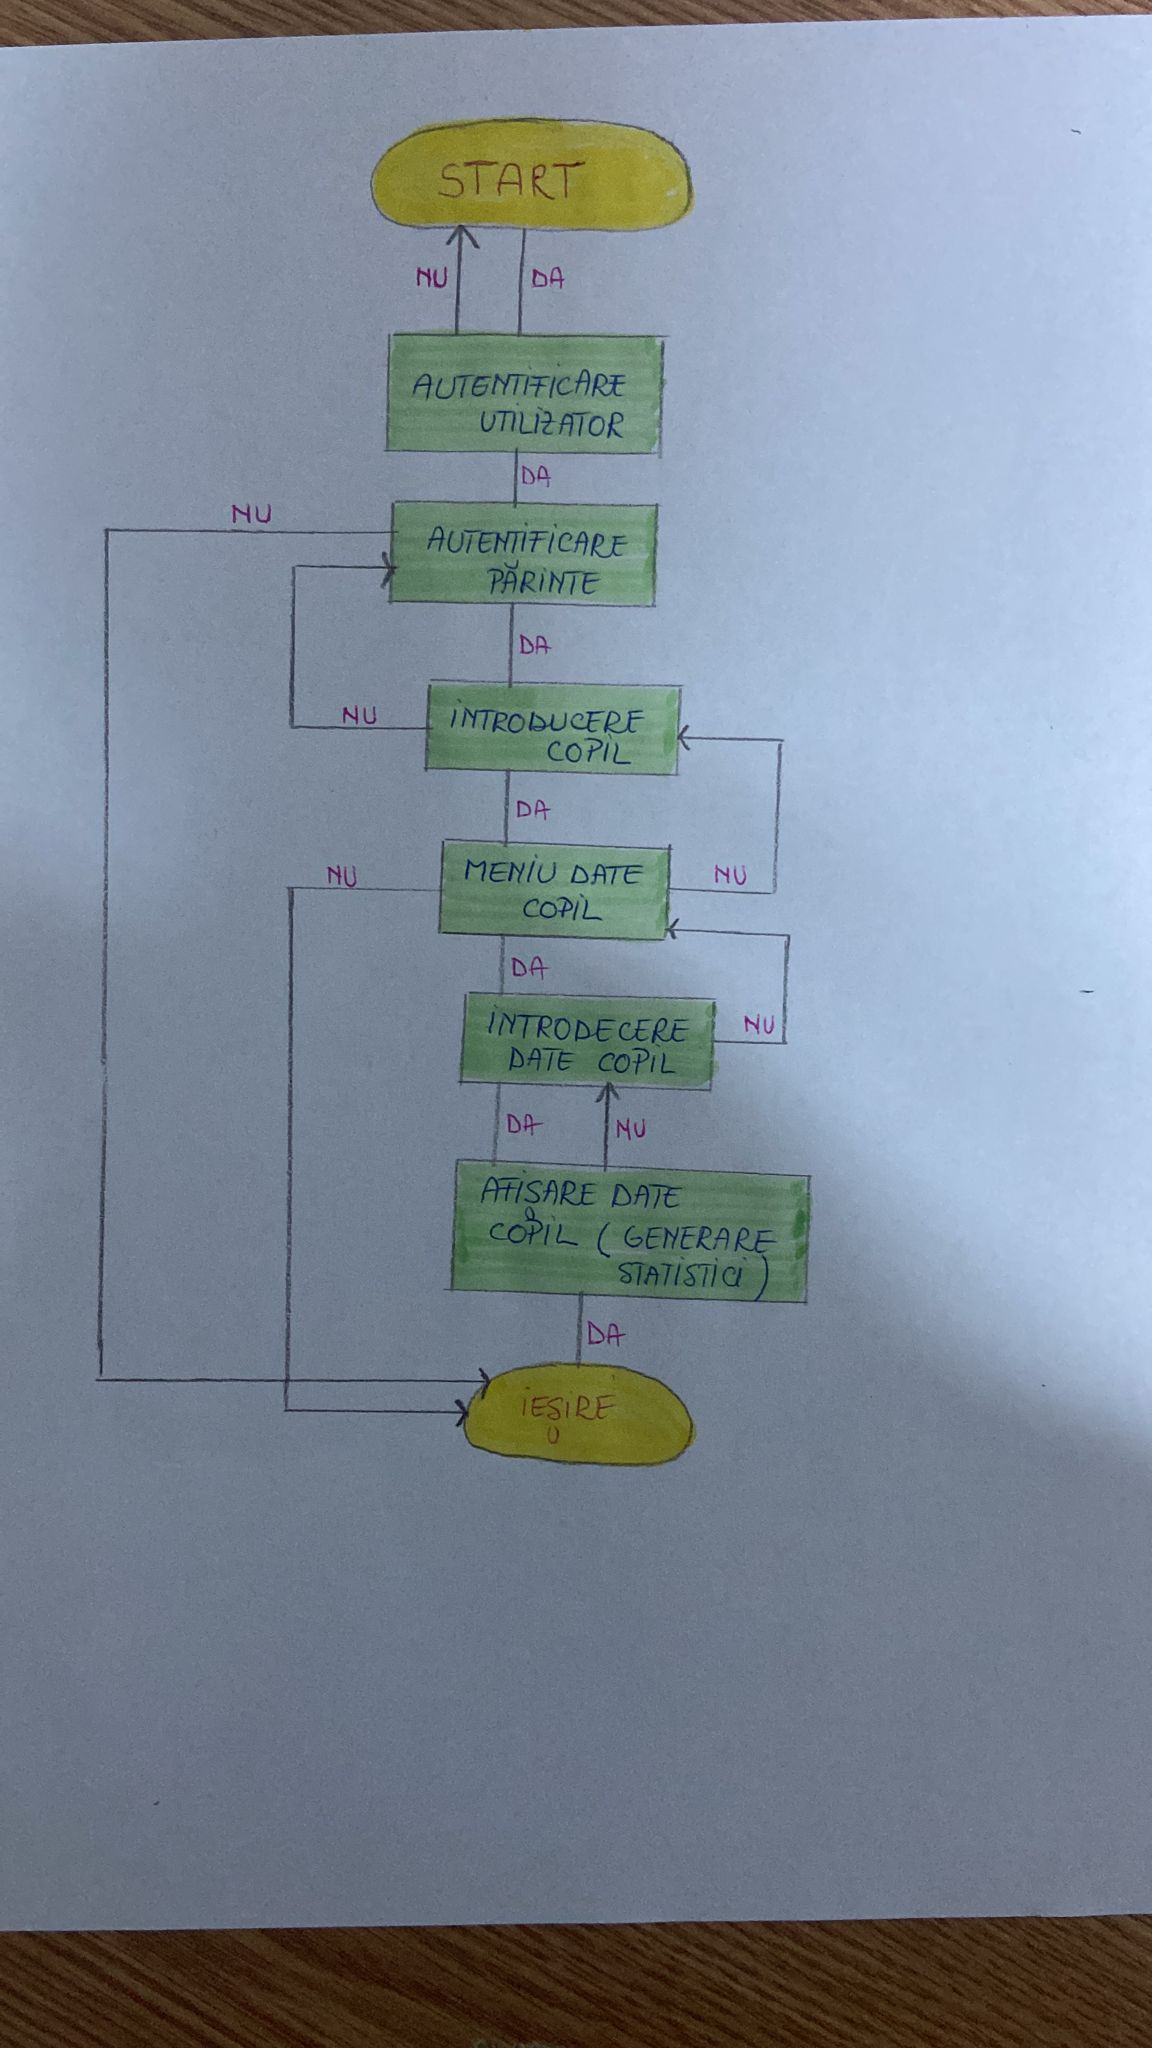 START
NU
DA
AUTENTIFICARE
UTILIZATOR
DA
NU
AUTENTIFICARE
PĂRINTE
DA
NU
INTRODUCERE
COPIL
DA
NU
MENIU DATE
COPIL
NU
DA
INTRODECERE
DATE COPIL
NU
DA
NU
AFIȘARE DATE
COPIL (GENERARE
STATISTICI)
DA
IEȘIRE